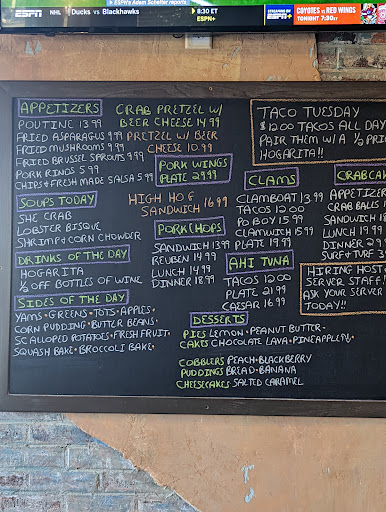 ESPN's Adam Schefter reports
ESPN NHL Ducks vs Blackhawks 8:30 ET ESPN+
STREAMING ON ESPN+
COYOTES vs RED WINGS
TONIGHT 7:30 ET
APPETIZERS
POUTINE 13.99
FRIED ASPARAGUS 9.99
FRIED MUSHROOMS 9.99
FRIED BRUSSEL SPROUTS 9.99
PORK RINDS 5.99
CHIPS & FRESH MADE SALSA 5.99
SOUPS TODAY
SHE CRAB
LOBSTER BISQUE
SHRIMP & CORN CHOWDER
DRINKS OF THE DAY
HOGARITA
1/2 OFF BOTTLES OF WINE
SIDES OF THE DAY
YAMS • GREENS • TOTS • APPLES •
CORN PUDDING • BUTTER BEANS •
SCALLOPED POTATOES • FRESH FRUIT •
SQUASH BAKE • BROCCOLI BAKE •
CRAB PRETZEL W/
BEER CHEESE 14.99
PRETZEL W/ BEER
CHEESE 10.99
PORK WINGS
PLATE 29.99
HIGH HOG
SANDWICH 16.99
PORK CHOPS
SANDWICH 13.99
REUBEN 14.99
LUNCH 14.99
DINNER 18.99
TACO TUESDAY
$12.00 TACOS ALL DAY
PAIR THEM W/ A 1/2 PRI
HOGARITA!!
CLAMS
CLAMBOAT 13.99
TACOS 12.00
PO BOY 15.99
CLAMWICH 15.99
PLATE 19.99
CRABCAK
APPETIZER
CRAB BALLS 1
SANDWICH 15
LUNCH 19.99
DINNER 29
SURF & TURF 3
AHI TUNA
TACOS 12.00
PLATE 21.99
CAESAR 16.99
HIRING HOST
SERVER STAFF!
ASK YOUR SERVER
TODAY!!
DESSERTS
PIES LEMON • PEANUT BUTTER •
CAKES CHOCOLATE LAVA • PINEAPPLE •
COBBLERS PEACH • BLACKBERRY
PUDDINGS BREAD • BANANA
CHEESECAKES SALTED CARAMEL